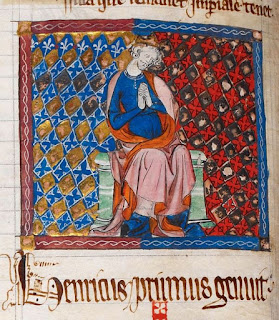 que remanet impiale tenet
Henricus primus genuit